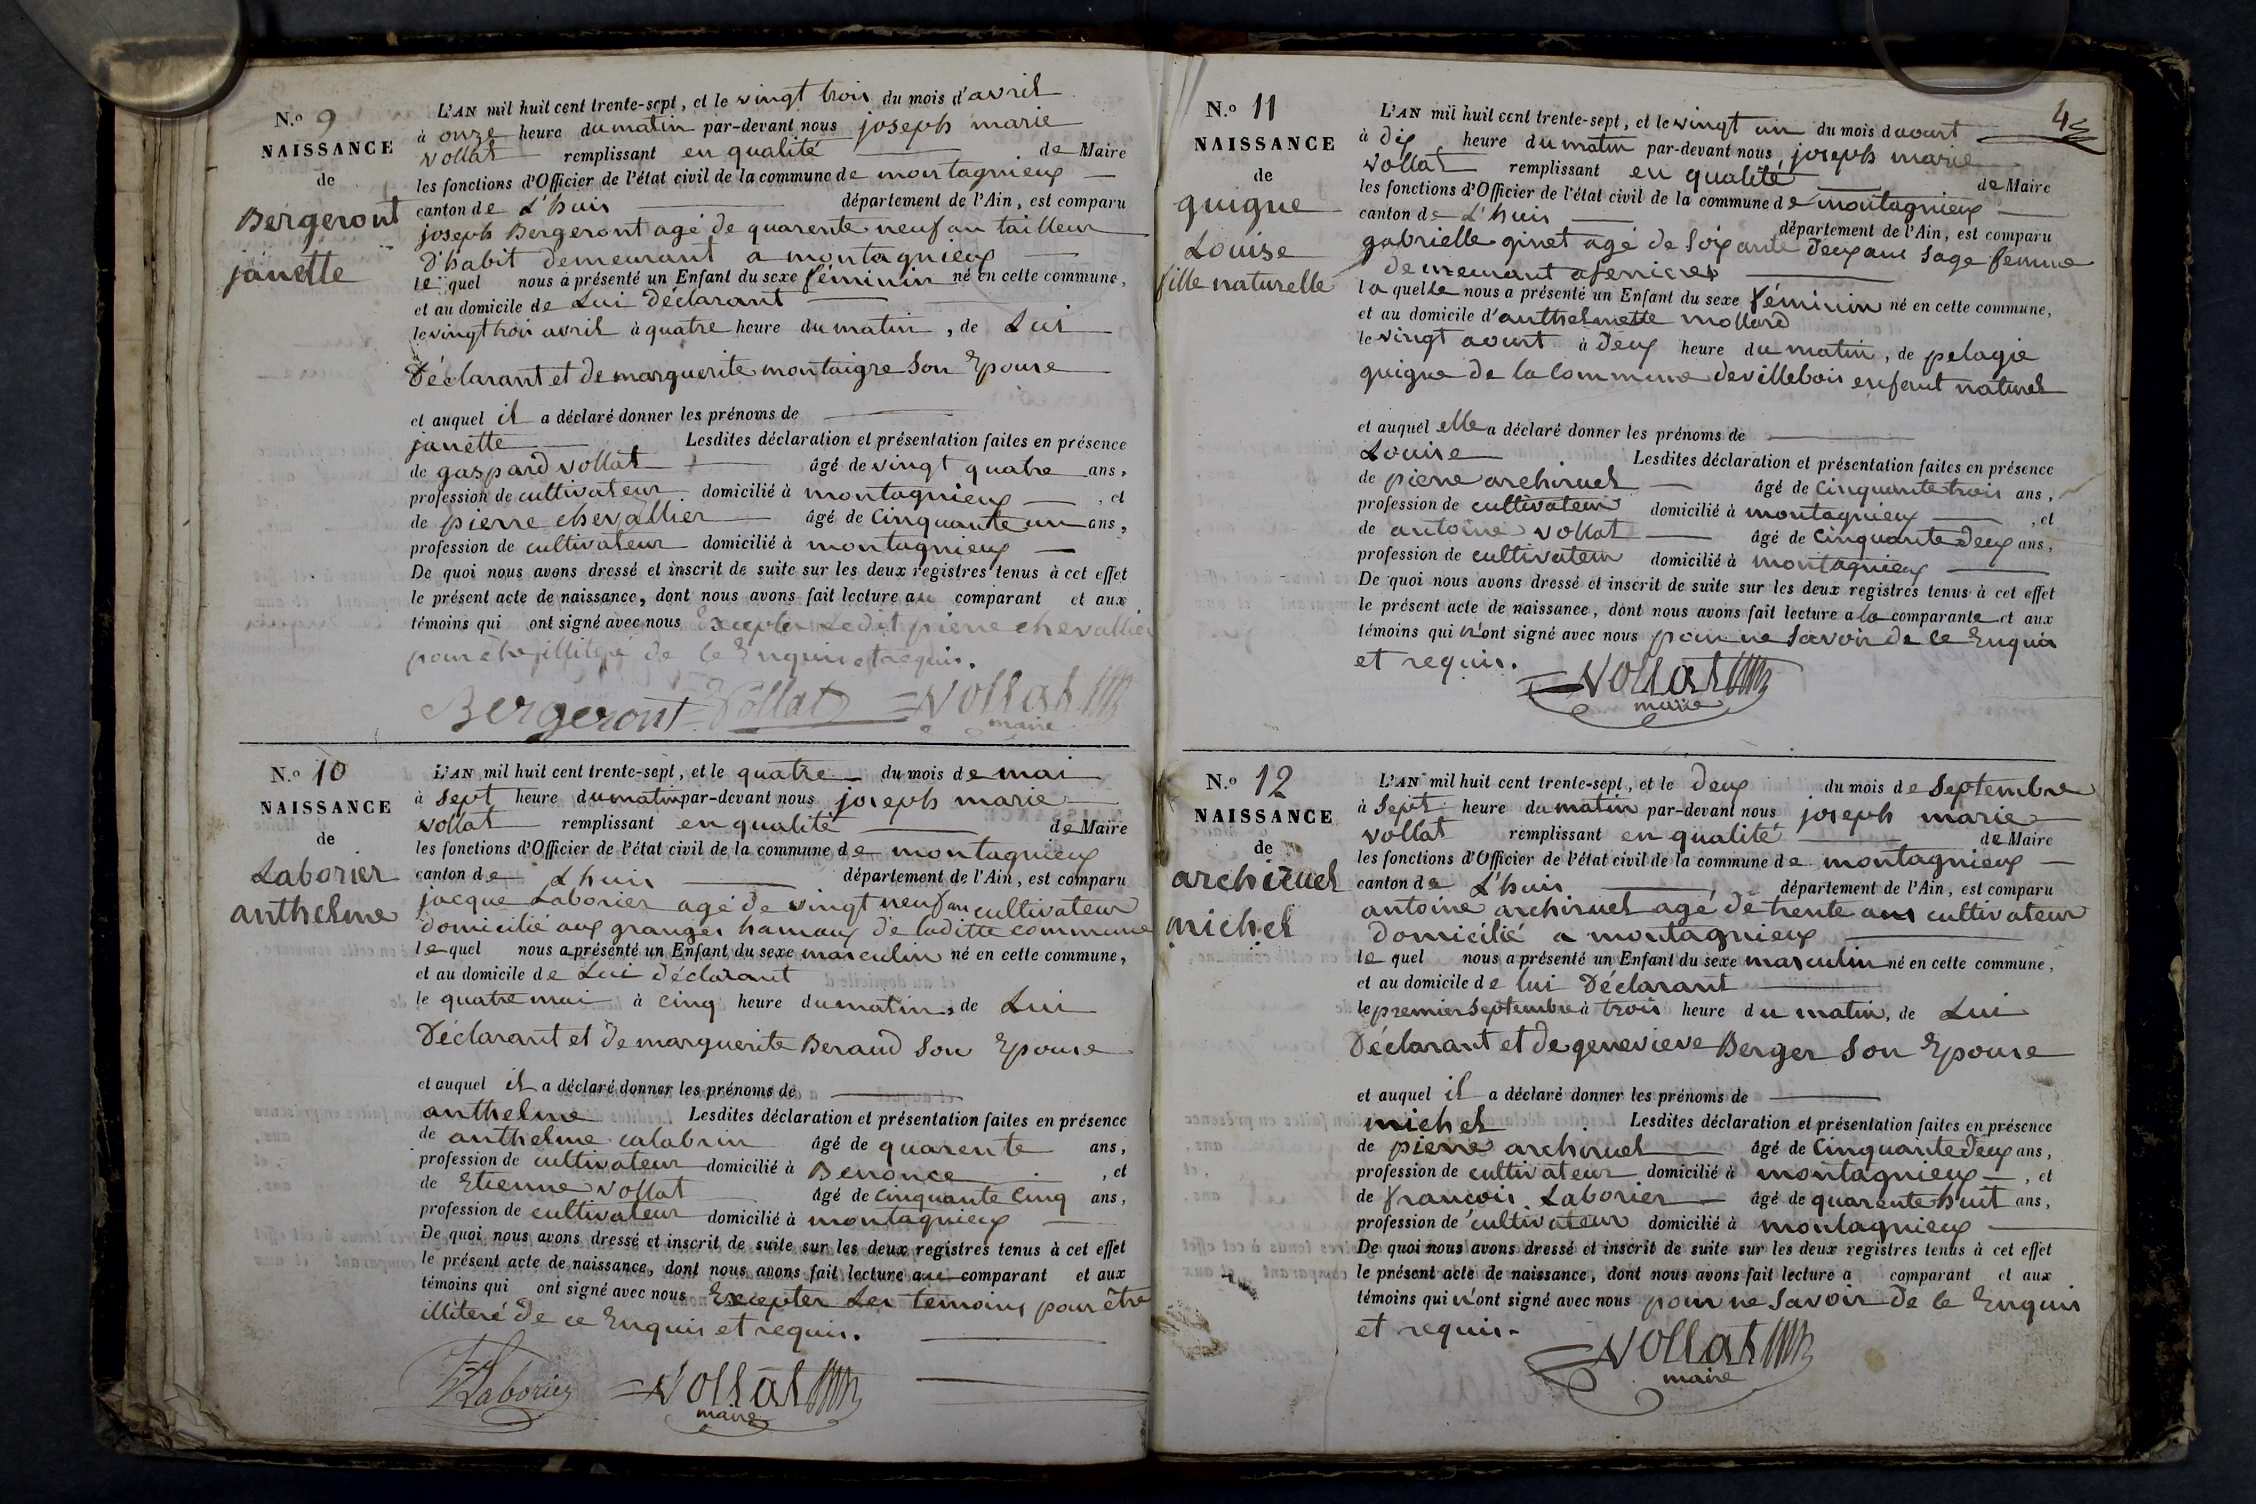 N.º 9
NAISSANCE
de
Bergeront
janette
L'AN mil huit cent trente-sept, et le vingt trois du mois d'avril
à onze heure du matin par-devant nous joseph marie
vollat remplissant en qualité de Maire
les fonctions d'Officier de l'état civil de la commune de montagnieux
canton de L'huis département de l'Ain, est comparu
joseph Bergeront agé de quarente neuf an tailleur
d'habit demeurant a montagnieux
le quel nous a présenté un Enfant du sexe féminin né en cette commune,
et au domicile de Lui déclarant
le vingt trois avril à quatre heure du matin, de Lui
Déclarant et de marguerite montaigre son Epouse
et auquel il a déclaré donner les prénoms de
janette Lesdites déclaration et présentation faites en présence
de gaspard vollat âgé de vingt quatre ans,
profession de cultivateur domicilié à montagnieux, et
de pierre chevallier âgé de cinquante un ans,
profession de cultivateur domicilié à montagnieux
De quoi nous avons dressé et inscrit de suite sur les deux registres tenus à cet effet
le présent acte de naissance, dont nous avons fait lecture au comparant et aux
témoins qui ont signé avec nous Excepter Ledit pierre chevallier
pour être illiteré de ce Enquis et requis.
Bergeront Vollat Vollat
maire
N.º 10
NAISSANCE
de
Laborier
anthelme
L'AN mil huit cent trente-sept, et le quatre du mois de mai
à sept heure du matin par-devant nous joseph marie
vollat remplissant en qualité de Maire
les fonctions d'Officier de l'état civil de la commune de montagnieux
canton de Lhuis département de l'Ain, est comparu
jacque Laborier agé de vingt neuf an cultivateur
domicilié aux granges hamaux de ladite commune
le quel nous a présenté un Enfant du sexe masculin né en cette commune,
et au domicile de Lui déclarant
le quatre mai à cinq heure du matin, de Lui
Déclarant et de marguerite Beraud son Epouse
et auquel il a déclaré donner les prénoms de
anthelme Lesdites déclaration et présentation faites en présence
de anthelme calabrin âgé de quarente ans,
profession de cultivateur domicilié à Benonce, et
de Etienne vollat âgé de cinquante cinq ans,
profession de cultivateur domicilié à montagnieux
De quoi nous avons dressé et inscrit de suite sur les deux registres tenus à cet effet
le présent acte de naissance, dont nous avons fait lecture au comparant et aux
témoins qui ont signé avec nous Excepter Les temoins pour être
illiteré de ce Enquis et requis.
Laborier Vollat
maire
4
N.º 11
NAISSANCE
de
guigue
Louise
fille naturelle
L'AN mil huit cent trente-sept, et le vingt un du mois d'aoust
à dix heure du matin par-devant nous, joseph marie
vollat remplissant en qualité de Maire
les fonctions d'Officier de l'état civil de la commune de montagnieux
canton de L'huis département de l'Ain, est comparu
gabrielle ginet agé de soixante deux ans sage femme
demeurant a
la quelle nous a présenté un Enfant du sexe féminin né en cette commune,
et au domicile d'anthelmette mollard
le vingt aoust à deux heure du matin, de pelagie
guigue de la commune de villebois enfant naturel
et auquel elle a déclaré donner les prénoms de
Louise Lesdites déclaration et présentation faites en présence
de pierre archiruel âgé de cinquante trois ans,
profession de cultivateur domicilié à montagnieux, et
de antoine vollat âgé de cinquante deux ans,
profession de cultivateur domicilié à montagnieux
De quoi nous avons dressé et inscrit de suite sur les deux registres tenus à cet effet
le présent acte de naissance, dont nous avons fait lecture a la comparante et aux
témoins qui n'ont signé avec nous pour ne savoir de ce Enquis
et requis.
Vollat
maire
N.º 12
NAISSANCE
de
archiruel
michel
L'AN mil huit cent trente-sept, et le deux du mois de septembre
à sept heure du matin par-devant nous joseph marie
vollat remplissant en qualité de Maire
les fonctions d'Officier de l'état civil de la commune de montagnieux
canton de L'huis département de l'Ain, est comparu
antoine archiruel agé de trente ans cultivateur
domicilié a montagnieux
le quel nous a présenté un Enfant du sexe masculin né en cette commune,
et au domicile de lui Déclarant
le premier septembre à trois heure du matin, de Lui
Déclarant et de genevieve Berger son Epouse
et auquel il a déclaré donner les prénoms de
michel Lesdites déclaration et présentation faites en présence
de pierre archiruel âgé de cinquante deux ans,
profession de cultivateur domicilié à montagnieux, et
de francois Laborier âgé de quarente huit ans,
profession de cultivateur domicilié à montagnieux
De quoi nous avons dressé et inscrit de suite sur les deux registres tenus à cet effet
le présent acte de naissance, dont nous avons fait lecture a comparant et aux
témoins qui n'ont signé avec nous pour ne savoir de ce Enquis
et requis.
Vollat
maire